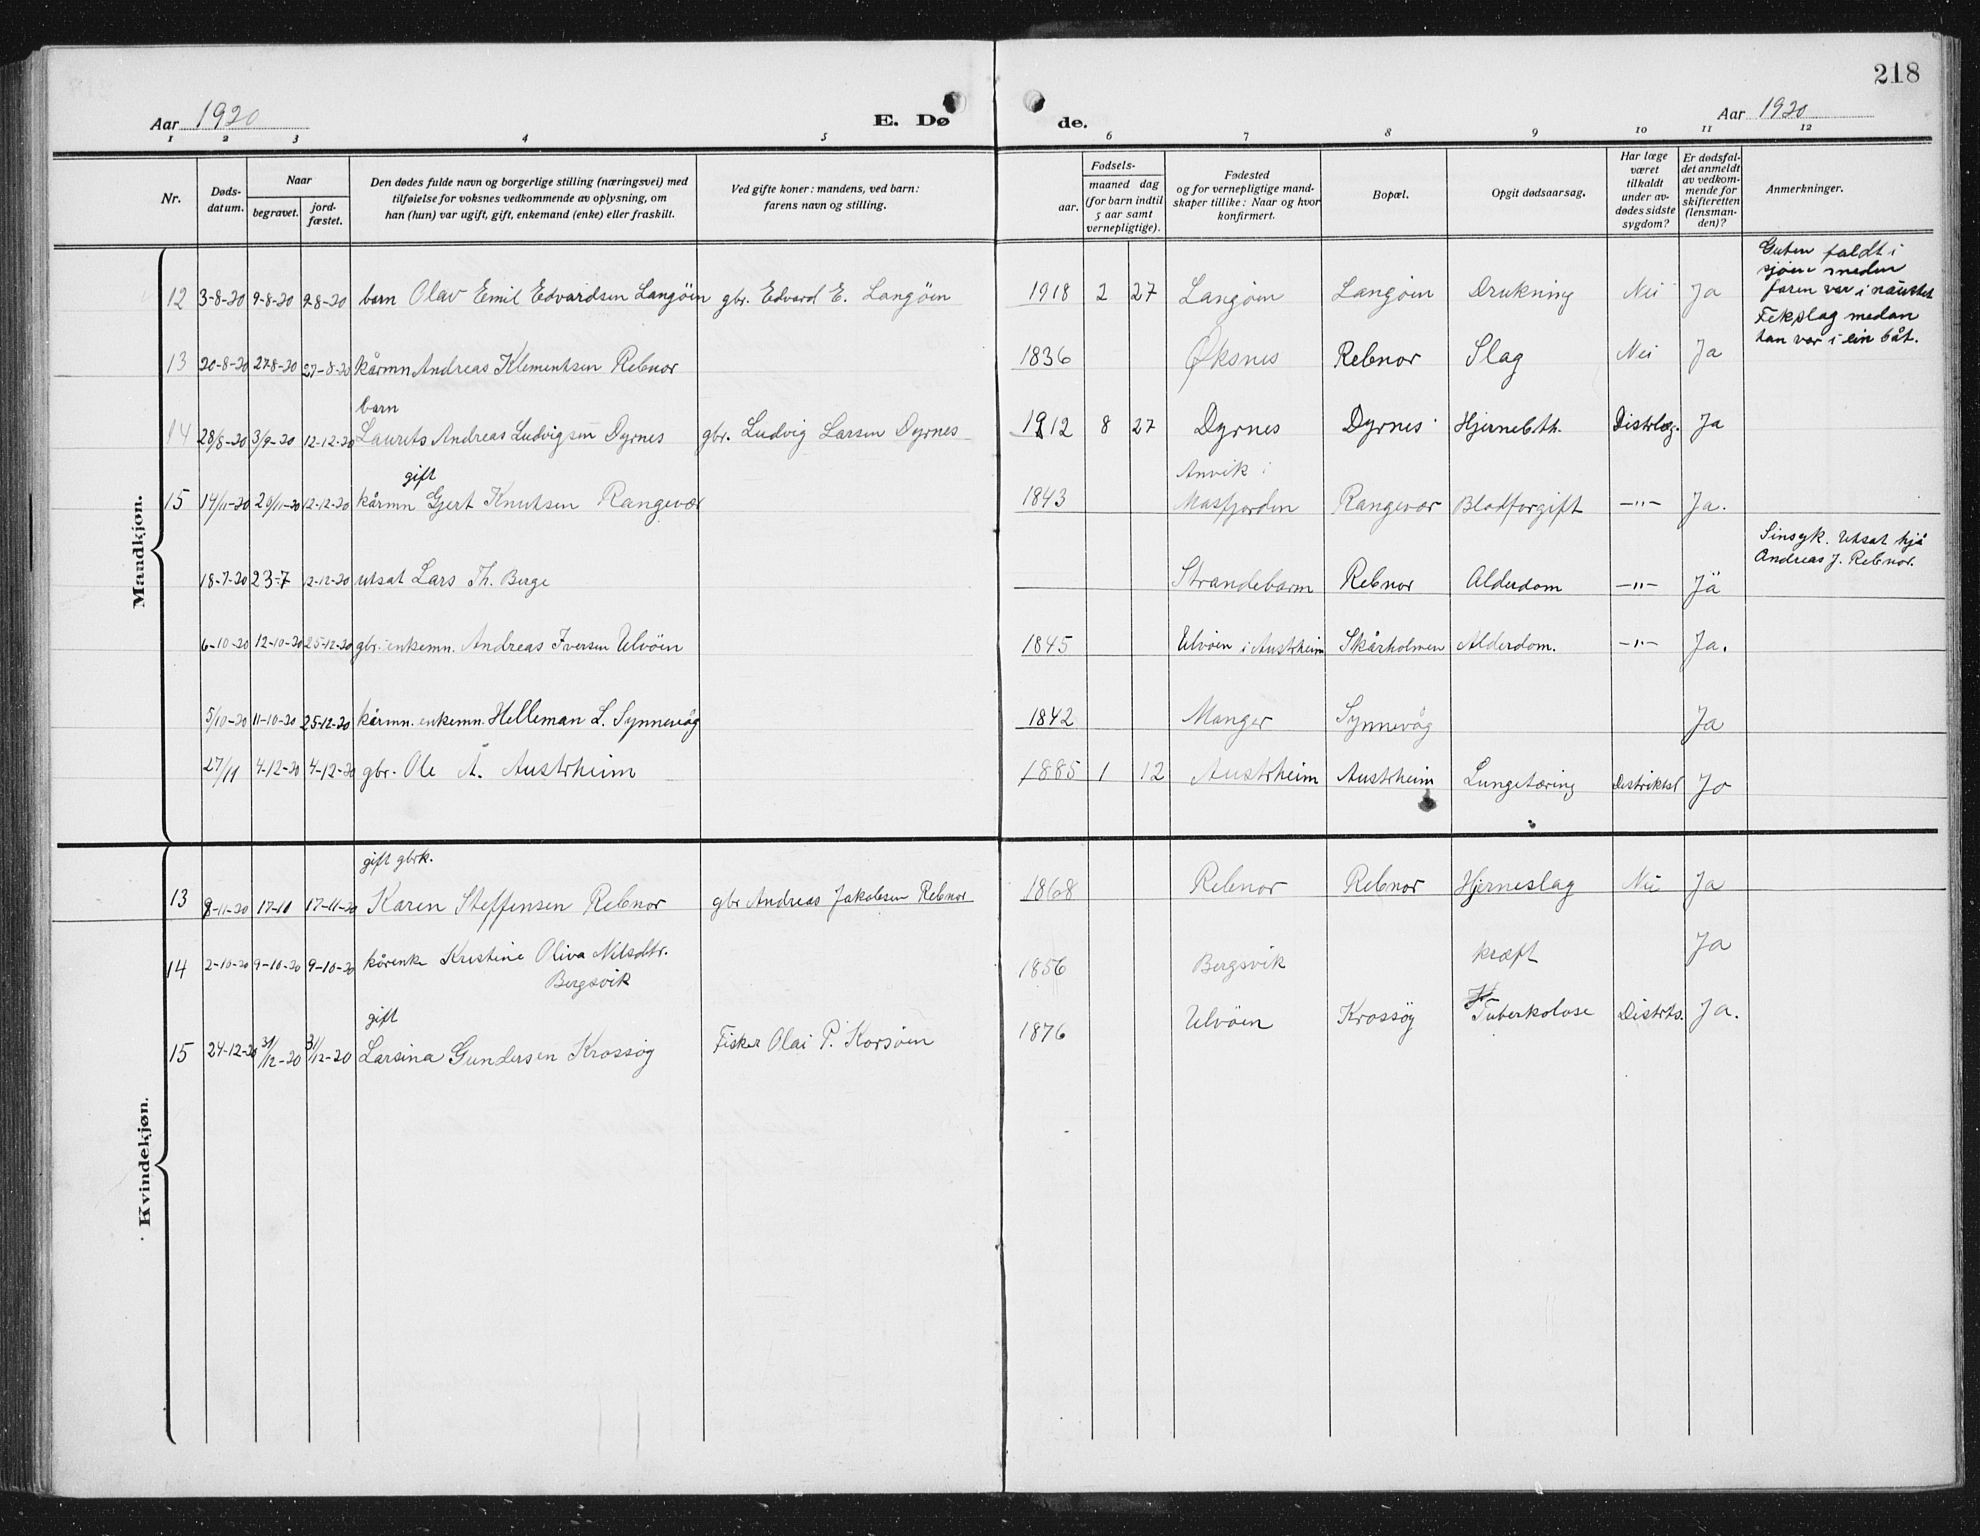 218
Aar 1920 E. Døde. Aar 1920
1 2 3 4 5 6 7 8 9 10 11 12
Nr.
Dødsdatum.
Naar
begravet.
jordfæstet.
Den dødes fulde navn og borgerlige stilling (næringsvei) med
tilføielse for voksnes vedkommende av oplysning, om
han (hun) var ugift, gift, enkemand (enke) eller fraskilt.
Ved gifte koner: mandens, ved barn:
farens navn og stilling.
Fødsels-
aar.
maaned dag
(for barn indtil
5 aar samt
vernepligtige).
Fødested
og for vernepligtige mand-
skaper tillike: Naar og hvor
konfirmert.
Bopæl.
Opgit dødsaarsag.
Har læge
været
tilkaldt
under av-
dødes sidste
sygdom?
Er dødsfal-
det anmeldt
av vedkom-
mende for
skifteretten
(lensman-
den)?
Anmerkninger.
Mandkjøn.
12 3-8-20 9-8-20 9-8-20 barn Olav Emil Edvardsen Langøen gbr. Edvard E. Langøen 1918 2 27 Langøen Langøen Drukning Nei Ja
Guten faldt i
sjøen meden
faren var i naustet
13 20-8-20 27-8-20 27-8-20 kårmn Andreas Klementsen Rebnor 1836 Øksnes Rebnor Slag Nei Ja
Fekslag medan
han var i ein båt.
barn
14 28/8-20 3/9-20 12-12-20 Laurits Andreas Ludvigsen Dyrnes gbr. Ludvig Larsen Dyrnes 1912 8 27 Dyrnes Dyrnes Hjernebth. Distrlæg. Ja
gift
15 14/11-20 20/11-20 12-12-20 kårmn Gjert Knutsen Rangevær 1843 Anvik i
Masfjorden Rangevær Blodforgift -"- Ja.
18-7-20 23-7 12-12-20 utsat Lars Th. Berge Strandebarm Rebnor Alderdom -"- Ja
Sinsyk. Utsat hjå
Andreas J. Rebnor.
6-10-20 12-10-20 25-12-20 gbr. enkemn. Andreas Iversen Ulvøen 1845 Ulvøen i Austrheim Skårholmen Alderdom. -"- Ja.
5/10-20 11-10-20 25-12-20 kårmn. enkemn. Helleman L. Synnevåg 1842 Manger Synnevåg Ja
27/11 4-12-20 4-12-20 gbr. Ole A. Austrheim 1885 1 12 Austrheim Austrheim Lungetæring Distriktsl Ja
Kvindekjøn.
gift gbrk.
13 8-11-20 17-11 17-11-20 Karen Steffensen Rebnor gbr Andreas Jakobsen Rebnor 1868 Rebnor Rebnor Hjerneslag Nei Ja
14 2-10-20 9-10-20 9-10-20 kårenke Kristine Oliva Nilsdtr.
Bergsvik 1856 Bergsvik kræft Ja
gift
15 24-12-20 31/12-20 31/12-20 Larsina Gundersen Krossøy Fisker Olai P. Korsøen 1876 Ulvøen Krossøy Tuberkolose Distrts. Ja.